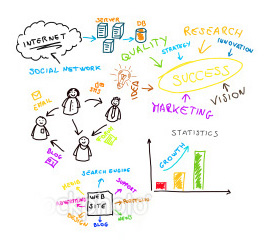 SERVER
DB
INTERNET
RESEARCH
QUALITY
STRATEGY
INNOVATION
SOCIAL NETWORK
SUCCESS
IDEA
EMAIL
VISION
MARKETING
STATISTICS
BLOG
GROWTH
SEARCH ENGINE
SUPPORT
WEB
SITE
BLOG
NEWS